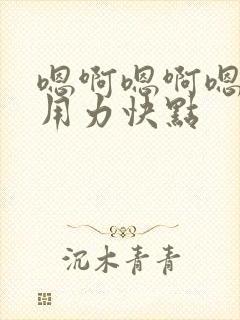 嗯啊嗯啊嗯
用力快點
沉木青青